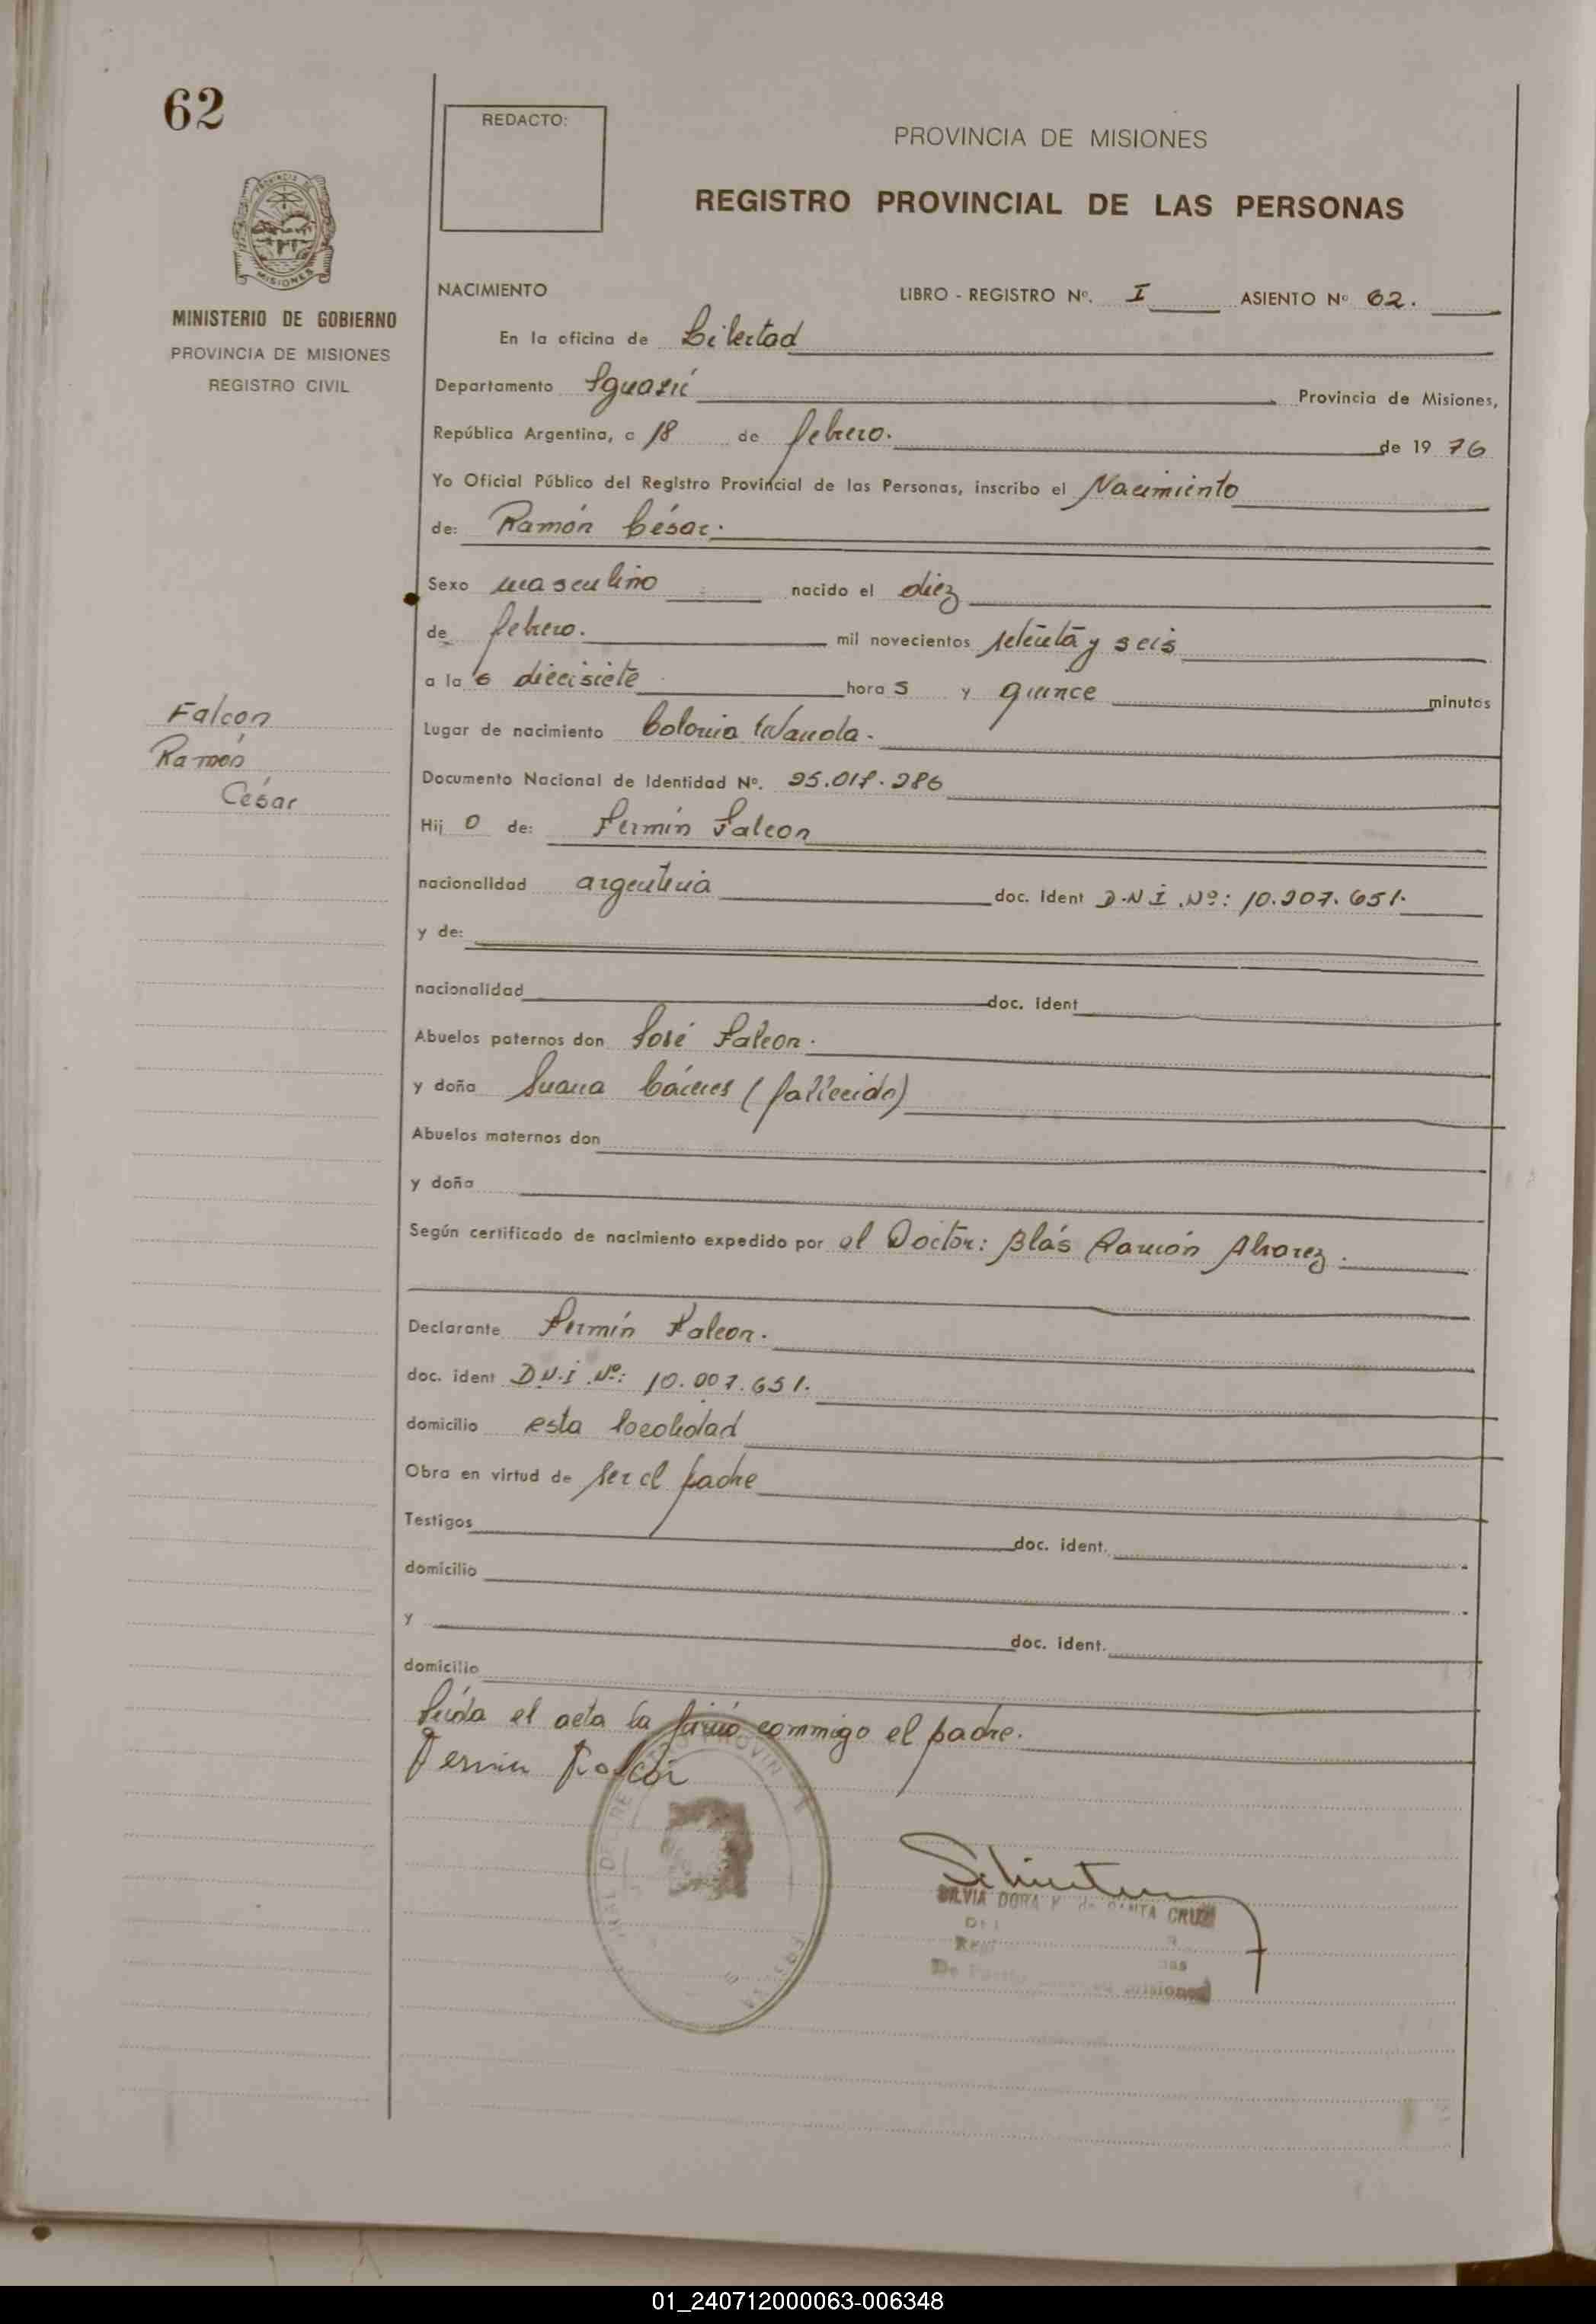 62
REDACTO:
PROVINCIA DE MISIONES
REGISTRO PROVINCIAL DE LAS PERSONAS
MISIONES
MINISTERIO DE GOBIERNO
PROVINCIA DE MISIONES
REGISTRO CIVIL
NACIMIENTO LIBRO - REGISTRO Nº. I ASIENTO Nº 62.
En la oficina de Libertad
Departamento Iguazú Provincia de Misiones,
República Argentina, a 18 de febrero. de 19 76
Yo Oficial Público del Registro Provincial de las Personas, inscribo el Nacimiento
de: Ramón César.
Sexo masculino nacido el diez
de febrero. mil novecientos setenta y seis
a la s diecisiete hora s y quince minutos
Falcon
Ramón
César
Lugar de nacimiento Colonia Wanda.
Documento Nacional de Identidad Nº. 25.017.286
Hij o de: Fermín Falcon
nacionalidad argentina doc. Ident D.N.I. Nº: 10.207.651.
y de:
nacionalidad doc. ident
Abuelos paternos don José Falcon.
y doña Juana Cáceres (fallecida)
Abuelos maternos don
y doña
Según certificado de nacimiento expedido por el Doctor: Blás Ramón Alvarez.
Declarante Fermín Falcon.
doc. ident D.N.I. Nº: 10.007.651.
domicilio esta localidad
Obra en virtud de ser el padre
Testigos doc. ident.
domicilio
y doc. ident.
domicilio
Leída el acta la firmó commigo el padre.
Fermin Falcon
SILVIA DORA K de SANTA CRUZ
01_240712000063-006348